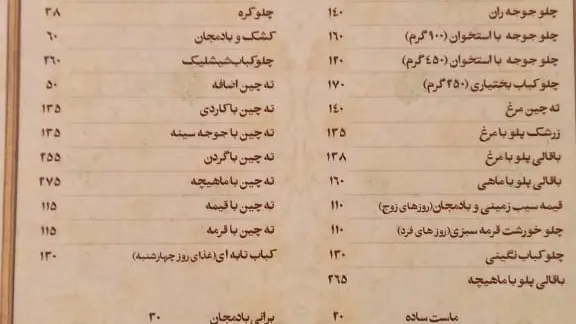 چلو جوجه ران ۱۴۰
چلو جوجه با استخوان (۹۰۰گرم) ۱۶۰
چلو جوجه با استخوان (۴۵۰گرم) ۱۲۰
چلو کباب بختیاری (۲۵۰گرم) ۱۷۰
ته چین مرغ ۱۴۰
زرشک پلو با مرغ ۱۳۵
باقالی پلو با مرغ ۱۳۸
باقالی پلو با ماهی ۱۶۰
قیمه سیب زمینی و بادمجان(روزهای زوج) ۱۱۰
چلو خورشت قرمه سبزی(روزهای فرد) ۱۱۰
چلو کباب نگینی ۱۳۰
باقالی پلو با ماهیچه ۲۶۵
ماست ساده ۲۰
چلو کره ۳۸
کشک و بادمجان ۶۰
چلوکباب شیشلیک ۲۶۰
ته چین اضافه ۵۰
ته چین با کاردی ۱۳۵
ته چین با جوجه سینه ۱۳۵
ته چین با گردن ۲۵۵
ته چین با ماهیچه ۲۷۵
ته چین با قیمه ۱۱۵
ته چین با قرمه ۱۱۵
کباب تابه ای(غذای روز چهارشنبه) ۱۳۰
برانی بادمجان ۳۰